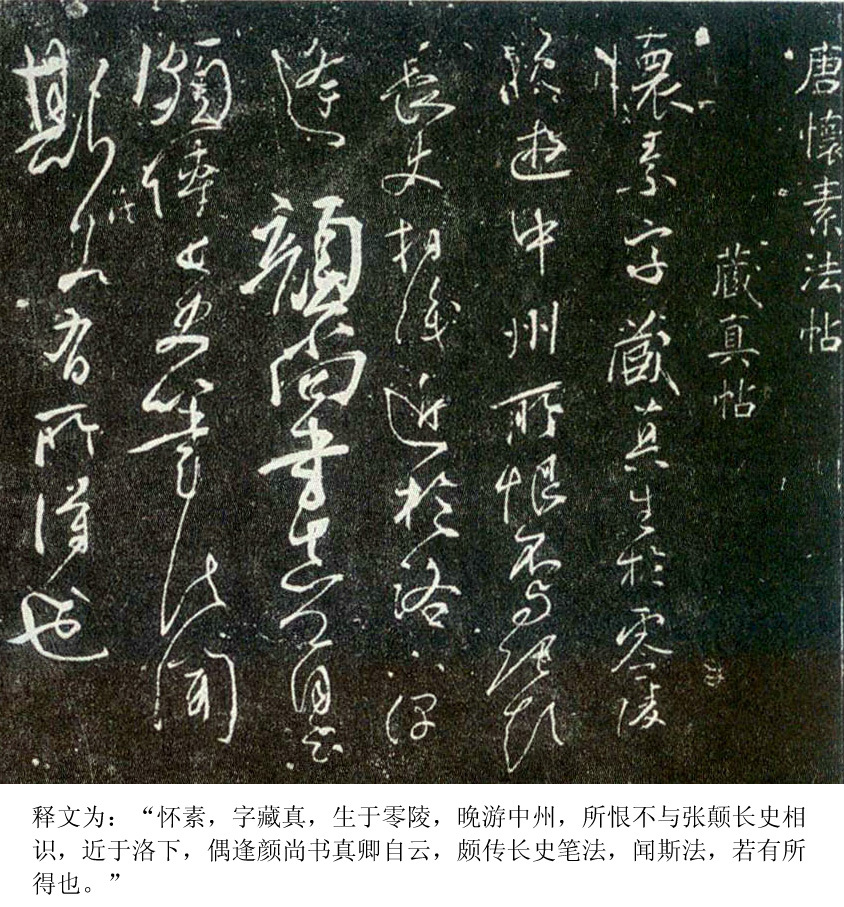 唐懷素法帖
藏真帖
懷素字藏真生於零陵
晚遊中州所恨不與張顛
長史相識近於洛下偶
逢顏尚書真卿自云
頗傳長史筆法聞
斯法若有所得也
释文为：“怀素，字藏真，生于零陵，晚游中州，所恨不与张颠长史相
识，近于洛下，偶逢颜尚书真卿自云，颇传长史笔法，闻斯法，若有所
得也。”